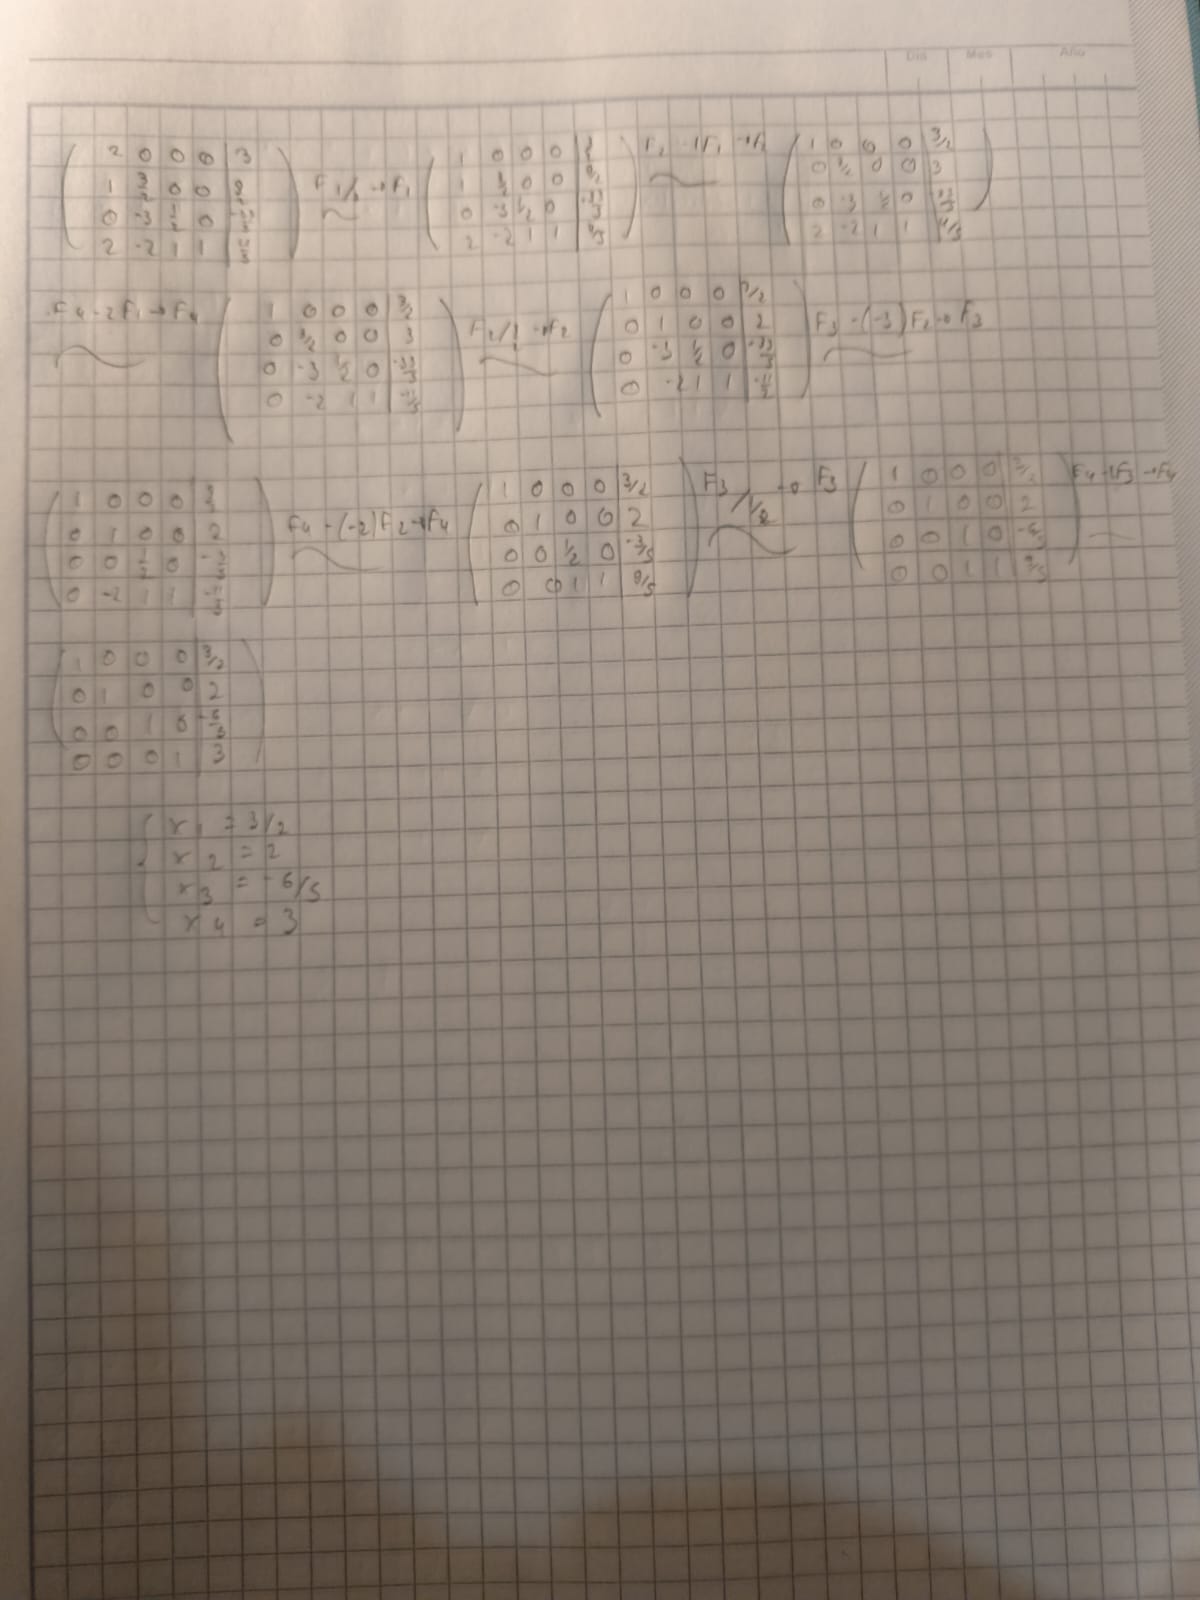 Día Mes Año
2 0 0 0 3
1 3/2 0 0 9/2
0 -3 1/2 0 -33/5
2 -2 1 1 4/5
F1/2 → F1
1 0 0 0
1 3/2 0 0 9/2
0 -3 1/2 0 -33/5
2 -2 1 1 4/5
F2 - 1F1 → F2
1 0 0 0 3/2
0 3/2 0 0 3
0 -3 1/2 0 -33/5
2 -2 1 1 4/5
F4 - 2F1 → F4
1 0 0 0 3/2
0 3/2 0 0 3
0 -3 1/2 0 -33/5
0 -2 1 1 -11/5
F2/ → F2
1 0 0 0 3/2
0 1 0 0 2
0 -3 1/2 0 -33/5
0 -2 1 1
F3 - (-3) F2 → F3
1 0 0 0
0 1 0 0 2
0 0 1/2 0 -3/5
0 -2 1 1 -11/5
F4 - (-2) F2 → F4
1 0 0 0 3/2
0 1 0 0 2
0 0 1/2 0 -3/5
0 0 1 1 9/5
F3/1/2 → F3
1 0 0 0 3/2
0 1 0 0 2
0 0 1 0 -6/5
0 0 1 1 9/5
F4 - 1F3 → F4
1 0 0 0 3/2
0 1 0 0 2
0 0 1 0 -6/5
0 0 0 1 3
x1 = 3/2
x2 = 2
x3 = -6/5
x4 = 3